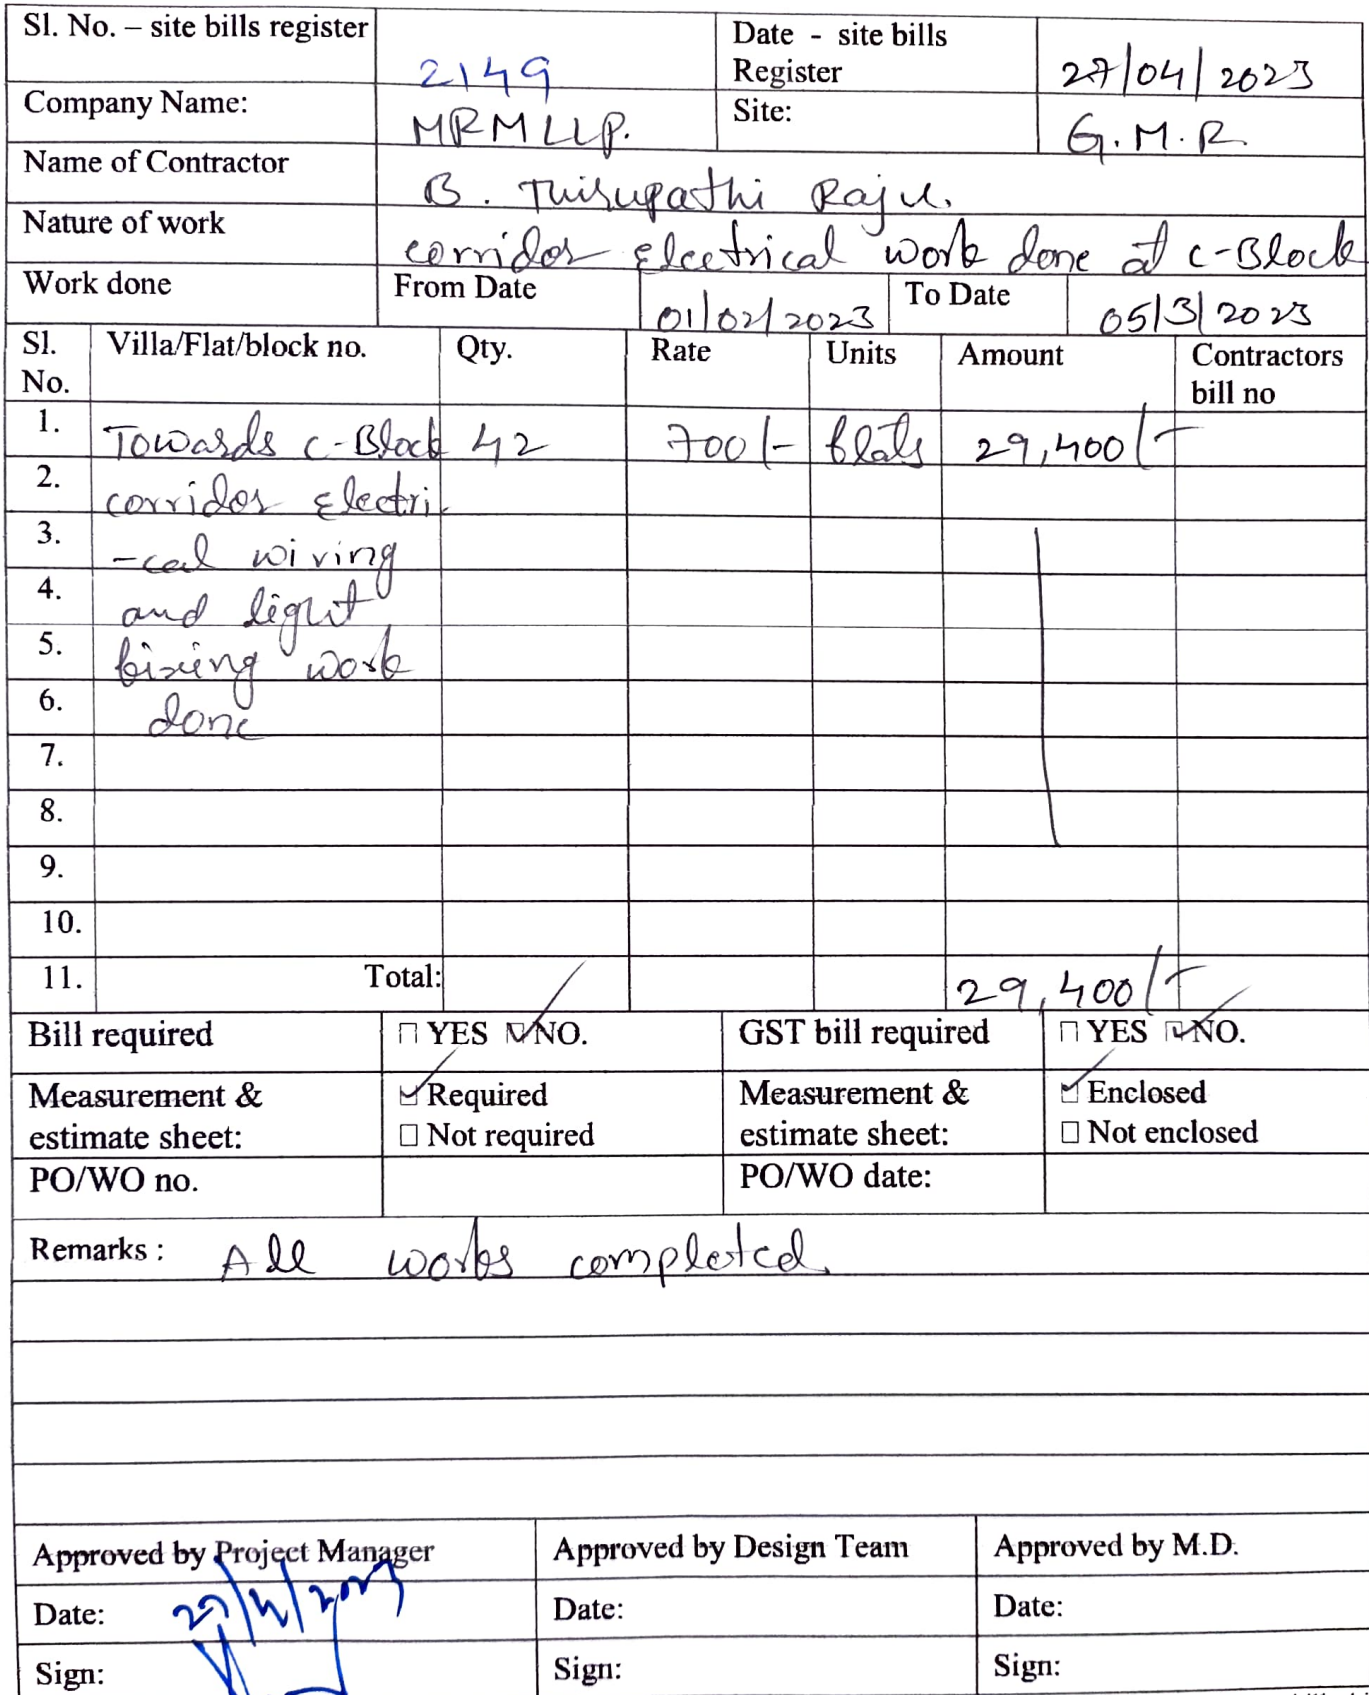 Sl. No. – site bills register 2149 Date - site bills Register 27/04/2023
Company Name: MRM LLP. Site: G.M.R.
Name of Contractor B. Thirupathi Raju.
Nature of work corridor Electrical work done at C-Block
Work done From Date 01/02/2023 To Date 05/3/2023
Sl. No. Villa/Flat/block no. Qty. Rate Units Amount Contractors bill no
1. Towards C-Block 42 700/- flats 29,400/-
2. corridor Electri
3. -cal wiring
4. and light
5. fixing work
6. done
7.
8.
9.
10.
11. Total: 29,400/-
Bill required YES NO. GST bill required YES NO.
Measurement & estimate sheet: Required Not required Measurement & estimate sheet: Enclosed Not enclosed
PO/WO no. PO/WO date:
Remarks : All works completed.
Approved by Project Manager Approved by Design Team Approved by M.D.
Date: 27/4/2023 Date: Date:
Sign: Sign: Sign: